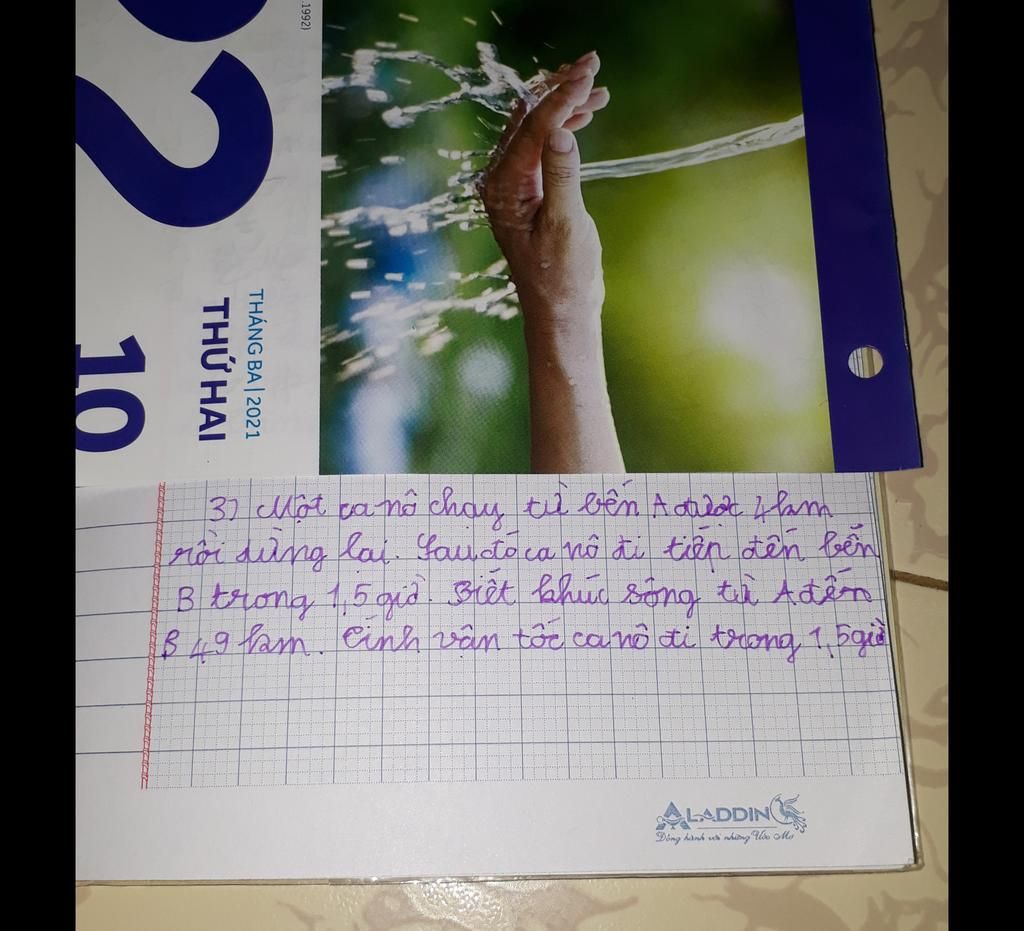 .1992)
2
THÁNG BA | 2021
THỨ HAI
10
3) Một ca nô chạy từ bến A được 4 km
rồi dừng lại. Sau đó ca nô đi tiếp đến bến
B trong 1,5 giờ. Biết khúc sông từ A đến
B 49 km. Tính vận tốc ca nô đi trong 1,5 giờ
ALADDIN
Đồng hành với những Ước Mơ